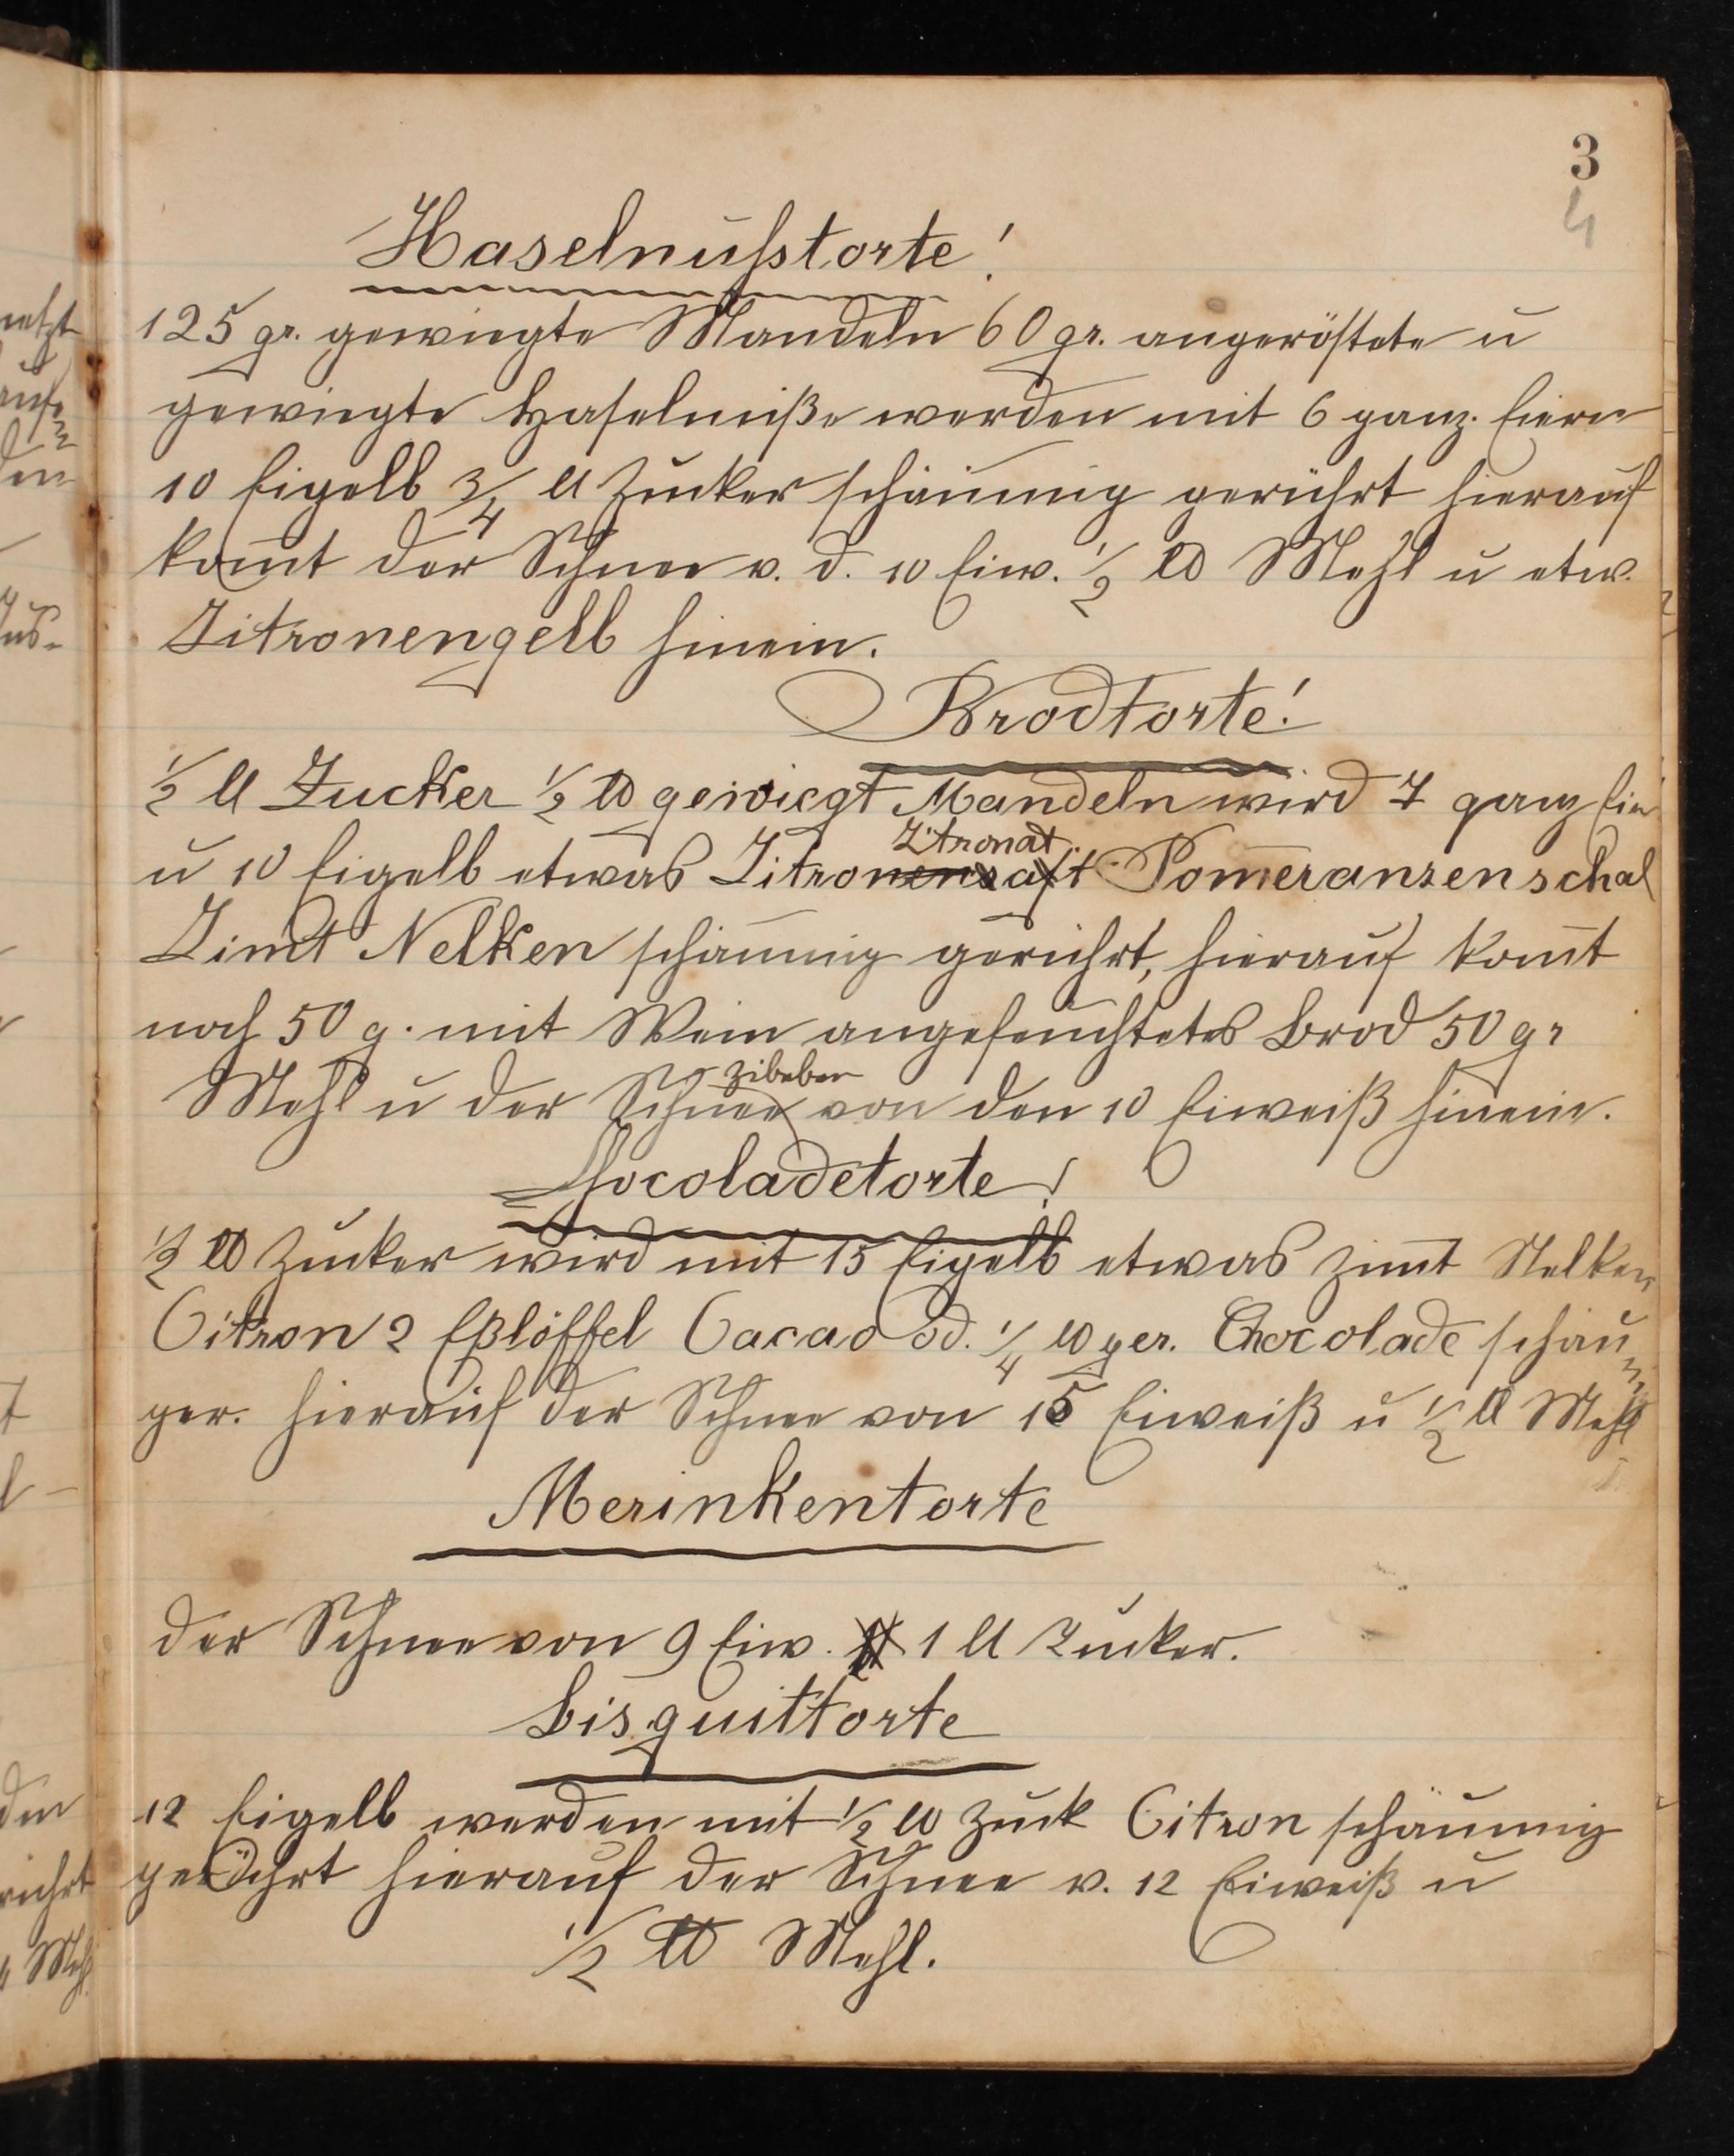 3
4
Haselnußtorte!
125 gr. gewiegte Mandeln 60 gr. angeröstete u
gewiegte Haselniße werden mit 6 ganz. Eiern
10 Eigelb 3/4 ℔ Zucker schäumig gerührt hierauf
kom̄t der Schnee v. d. 10 Eiw. 1/2 ℔ Mehl u etw.
Zitronengelb hinein.
Brodtorte!
1/2 ℔ Zucker 1/2 ℔ gewiegt Mandeln wird 7 ganz Eier
Zitronat
u 10 Eigelb etwas Zitronensaft Pom̄eranzenschal
Zimt Nelken schäumig gerührt, hierauf kom̄t
noch 50 g. mit Wein angefeuchtetes Brod 50 gr
Zibeben
Mehl u der Schnee von den 10 Eiweiß hinein.
Chocoladetorte!
1/2 ℔ Zucker wird mit 15 Eigelb etwas Zim̄t Nelken
Citron 2 Eßlöffel Cacao od. 1/4 ℔ ger. Chocolade schäu=
ger. hierauf der Schnee von 15 Eiweiß u 1/2 ℔ Mehl
Merinkentorte
der Schnee von 9 Eiw. 1 ℔ Zucker.
Bisquittorte
12 Eigelb werden mit 1/2 ℔ Zuck Citron schäumig
gerührt hierauf der Schnee v. 12 Eiweiß u
1/2 ℔ Mehl.